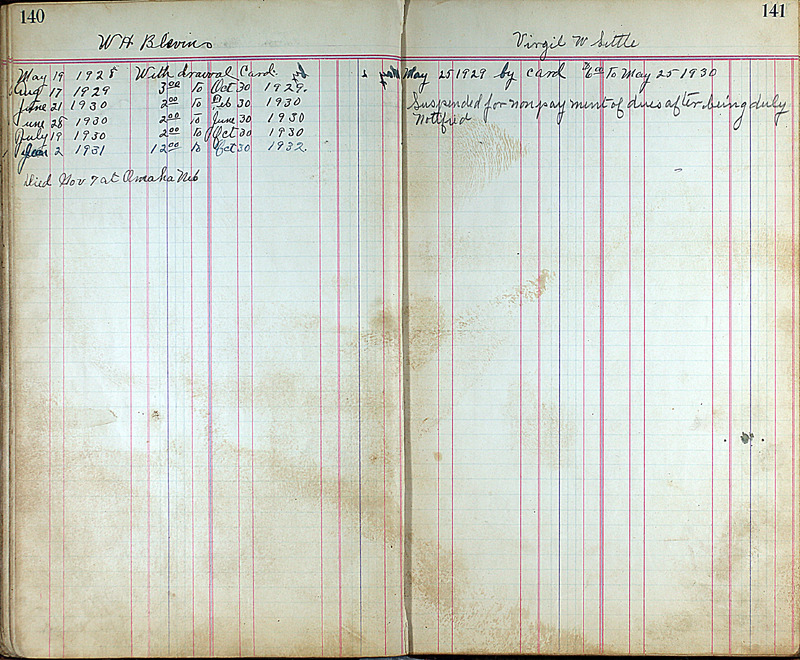 140
W H Blevins
May 19 1928 With drawal Card.
Aug 17 1929 3 00 To Oct 30 1929.
June 21 1930 2 00 To 30 1930
June 28 1930 2 00 To June 30 1930
July 19 1930 2 00 To Oct 30 1930
Jan 2 1931 12 00 to Oct 30 1932.
Died Nov 7 at Omaha Neb
141
Virgil W Settle
May 25 1929 by card 6 00 To May 25 1930
Suspended for nonpayment of dues after being duly
Notified